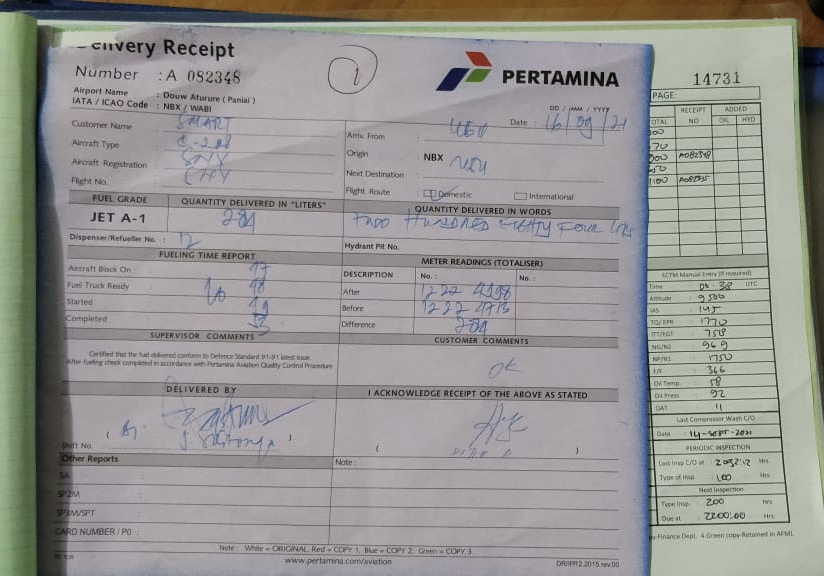 Delivery Receipt
Number : A 082348
1
PERTAMINA
Airport Name : Douw Aturure ( Paniai )
IATA / ICAO Code : NBX / WABI
DD / MM / YYYY
Date : 16 / 09 / 21
Customer Name : SMART
Aircraft Type : C-208
Aircraft Registration : SNY
Flight No. : SNY
Arriv. From :
Origin : NBX
Next Destination :
Flight Route : Domestic International
FUEL GRADE QUANTITY DELIVERED IN "LITERS" QUANTITY DELIVERED IN WORDS
JET A-1 284 TWO HUNDRED EIGHTY FOUR
Dispenser/Refueller No. : 12 Hydrant Pit No.
FUELING TIME REPORT METER READINGS (TOTALISER)
Aircraft Block On 47
Fuel Truck Ready 48
Started 49
Completed 53
DESCRIPTION No. : No. :
After 1222 4998
Before 1222 4713
Difference 284
SUPERVISOR COMMENTS CUSTOMER COMMENTS
Certified that the fuel delivered conform to Defence Standard 91-91 latest issue.
After fueling check completed in accordance with Pertamina Aviation Quality Control Procedure
OK
DELIVERED BY I ACKNOWLEDGE RECEIPT OF THE ABOVE AS STATED
Shift No. ( ) ( )
Other Reports Note :
SA :
SP2M :
SP3M/SPT :
CARD NUMBER / P0 :
Note : White = ORIGINAL, Red = COPY 1, Blue = COPY 2, Green = COPY 3
www.pertamina.com/aviation
DR/IPI12.2015 rev.00
14731
PAGE:
TOTAL RECEIPT NO ADDED
OIL HYD
A082348
ECTM Manual Entry (If required)
Time : 06.38 UTC
Altitude : 9500
IAS : 145
TQ/ EPR : 1770
ITT/EGT : 758
NG/N1 : 96.9
NP/N2 : 1750
F/F : 366
Oil Temp. : 58
Oil Press : 92
OAT : 11
Last Compressor Wash C/O
Date : 14-SEPT-2021
PERIODIC INSPECTION
Last Insp C/O at : 2092:12 Hrs
Type of Insp : 100 Hrs
Next Inspection
Type Insp. : 200 Hrs
Due at : 2200:00 Hrs
py-Finance Dept, 4.Green copy-Retained in AFML